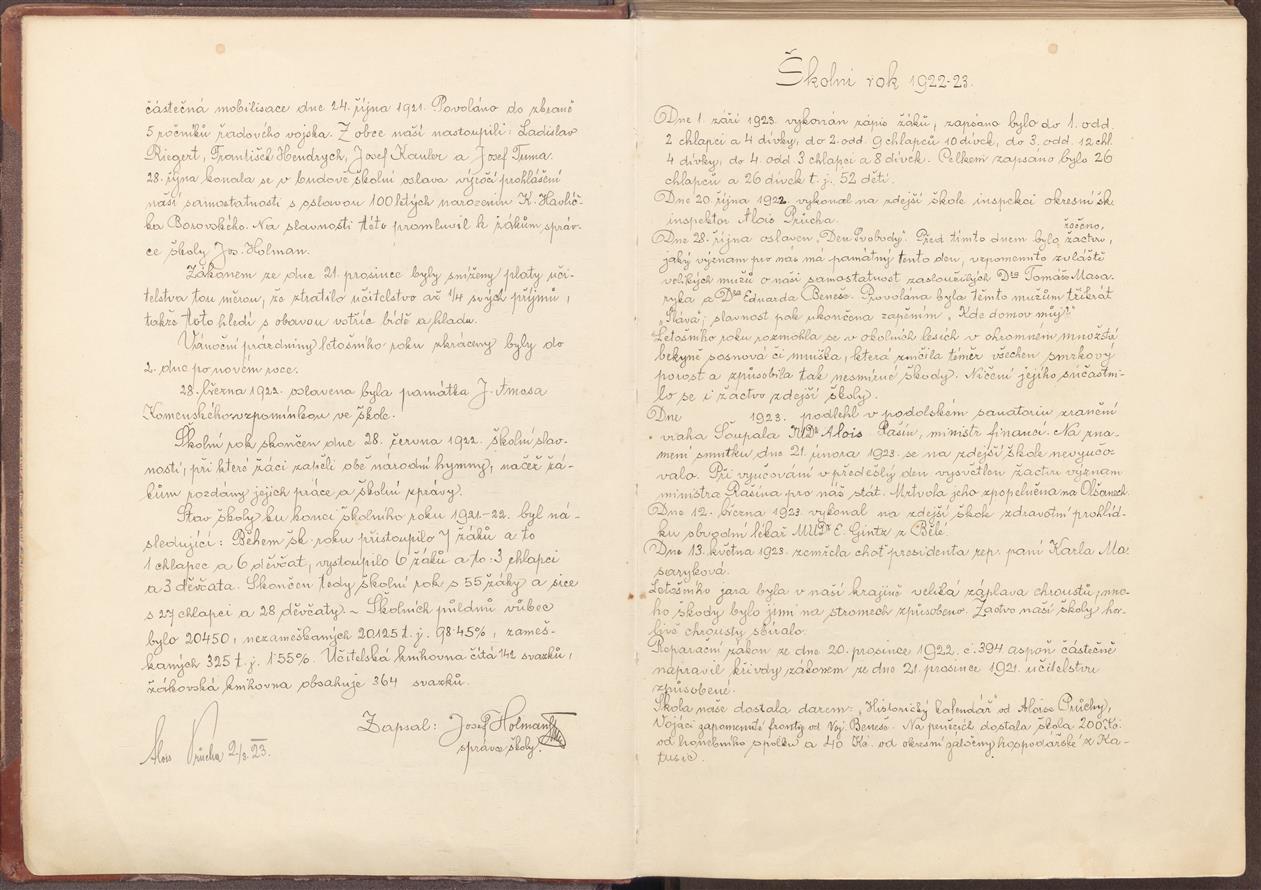 částečná mobilisace dne 24. října 1921. Povoláno do zbraně
5 ročníků řadového vojska. Z obce naší nastoupili: Ladislav
Riegert, František Hendrych, Josef Kauler a Josef Tuma.
28. října konala se v budově školní oslava výročí prohlášení
naší samostatnosti s oslavou 100letých narozenin K. Havlíč-
ka Borovského. Na slavnosti této promluvil k žákům správ-
ce školy Jos. Holman.
Zákonem ze dne 21. prosince byly sníženy platy uči-
telstva tou měrou, že ztratilo učitelstvo až 1/4 svých příjmů,
takže toto hledí s obavou vstříc bídě a hladu.
Vánoční prázdniny letošního roku zkráceny byly do
2. dne po novém roce.
28. března 1922. oslavena byla památka J. Amosa
Komenského vzpomínkou ve škole.
Školní rok skončen dne 28. června 1922. školní slav-
ností, při které žáci zapěli obě národní hymny, načež žá-
kům rozdány jejich práce a školní zprávy.
Stav školy ku konci školního roku 1921-22. byl ná-
sledující: Během šk. roku přistoupilo 7 žáků a to
1 chlapec a 6 děvčat, vystoupilo 6 žáků a to: 3 chlapci
a 3 děvčata. Skončen tedy školní rok s 55 žáky a sice
s 27 chlapci a 28 děvčaty. ~ Školních půldnů vůbec
bylo 20450, nezameškaných 20125 t. j. 98·45%, zameš-
kaných 325 t. j. 1·55%. Učitelská knihovna čítá 142 svazků,
žákovská knihovna obsahuje 364 svazků.
Zapsal: Josef Holman
správce školy.
Alois Průcha 2/3. 23.
Školní rok 1922-23.
Dne 1. září 1923. vykonán zápis žáků, zapsáno bylo do 1. odd.
2 chlapci a 4 dívky, do 2. odd. 9 chlapců 10 dívek, do 3. odd. 12 chl.
4 dívky, do 4. odd. 3 chlapci a 8 dívek. Celkem zapsáno bylo 26
chlapců a 26 dívek t. j. 52 dětí.
Dne 20. října 1922. vykonal na zdejší škole inspekci okresní šk.
inspektor Alois Průcha.
Dne 28. října oslaven „Den Svobody“. Před tímto dnem bylo řečeno, žactvu,
jaký význam pro nás má památný tento den, vzpomenuto zvláště
velikých mužů o naši samostatnost zasloužilých Dra Tomáše Masa-
ryka a Dra Eduarda Beneše. Provolána byla těmto mužům třikrát
„Sláva“; slavnost pak ukončena zapěním „Kde domov můj?“
Letošního roku rozmohla se v okolních lesích v ohromném množství
bekyně sosnová či mniška, která zničila téměř všechen smrkový
porost a způsobila tak nesmírné škody. Ničení jejího súčastni-
lo se i žactvo zdejší školy.
Dne 1923. podlehl v podolském sanatoriu zranění
vraha Šoupala JUDr Alois Rašín, ministr financí. Na zna-
mení smutku dne 21. února 1923. se na zdejší škole nevyučo-
valo. Při vyučování v předešlý den vysvětlen žactvu význam
ministra Rašína pro náš stát. Mrtvola jeho zpopelněna na Olšanech.
Dne 12. března 1923. vykonal na zdejší škole zdravotní prohlíd-
ku obvodní lékař MUDr E. Gintz z Bělé.
Dne 13. května 1923. zemřela choť presidenta rep. paní Karla Ma-
saryková.
Letošního jara byla v naší krajině veliká záplava chroustů, mno-
ho škody bylo jimi na stromech způsobeno. Žactvo naší školy hor-
livě chrousty sbíralo.
Reparační zákon ze dne 20. prosince 1922. č. 394 aspoň částečně
napravil křivdy zákonem ze dne 21. prosince 1921. učitelstvu
způsobené.
Škola naše dostala darem: „Historický kalendář“ od Aloise Průchy,
Vojáci zapomenuté fronty od Voj. Beneše. Na penězích dostala škola 200 Kč.
od honebního spolku a 40 Kč. od okresní záložny hospodářské z Ka-
tusic.